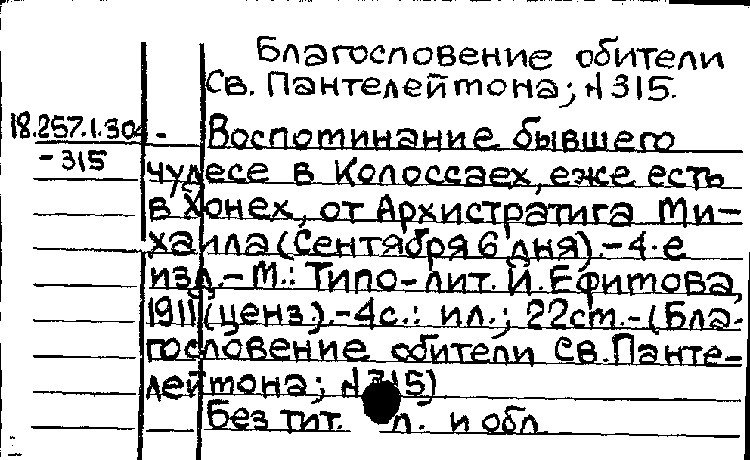 Благословение обители
Св. Пантелеймона; N 315.
18.257.1.304 - Воспоминание бывшего
-315 чудесе в Колоссаех, еже есть
в Хонех, от Архистратига Ми-
хаила (Сентября 6 дня).-4-е
изд.-М.: Типо-лит. И. Ефимова,
1911 (ценз.).-4с.: ил.; 22см.-(Бла-
гословение обители Св. Панте-
леймона; N 315)
Без тит. л. и обл.